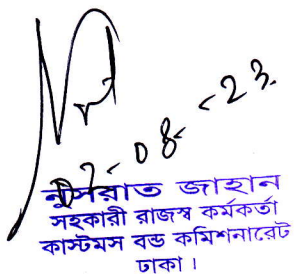 ০৭-০৪-২৩
নুসরাত জাহান
সহকারী রাজস্ব কর্মকর্তা
কাস্টমস বন্ড কমিশনারেট
ঢাকা।